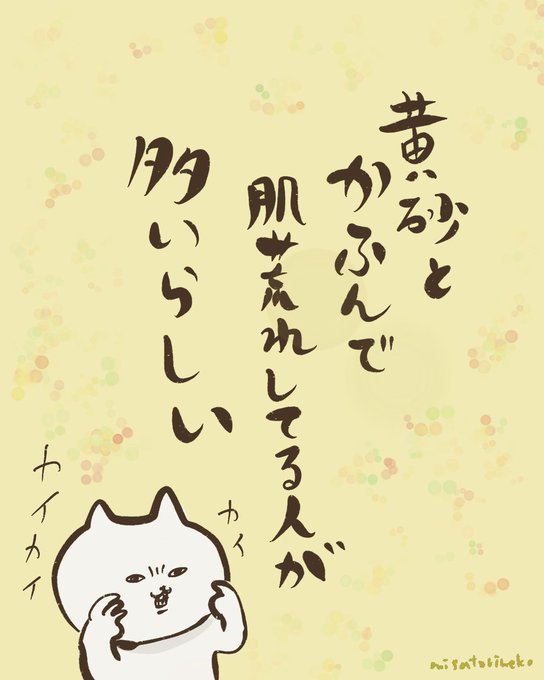 黄砂と
かふんで
肌荒れしてる人が
多いらしい
カイカイ
カイ
misatorineko